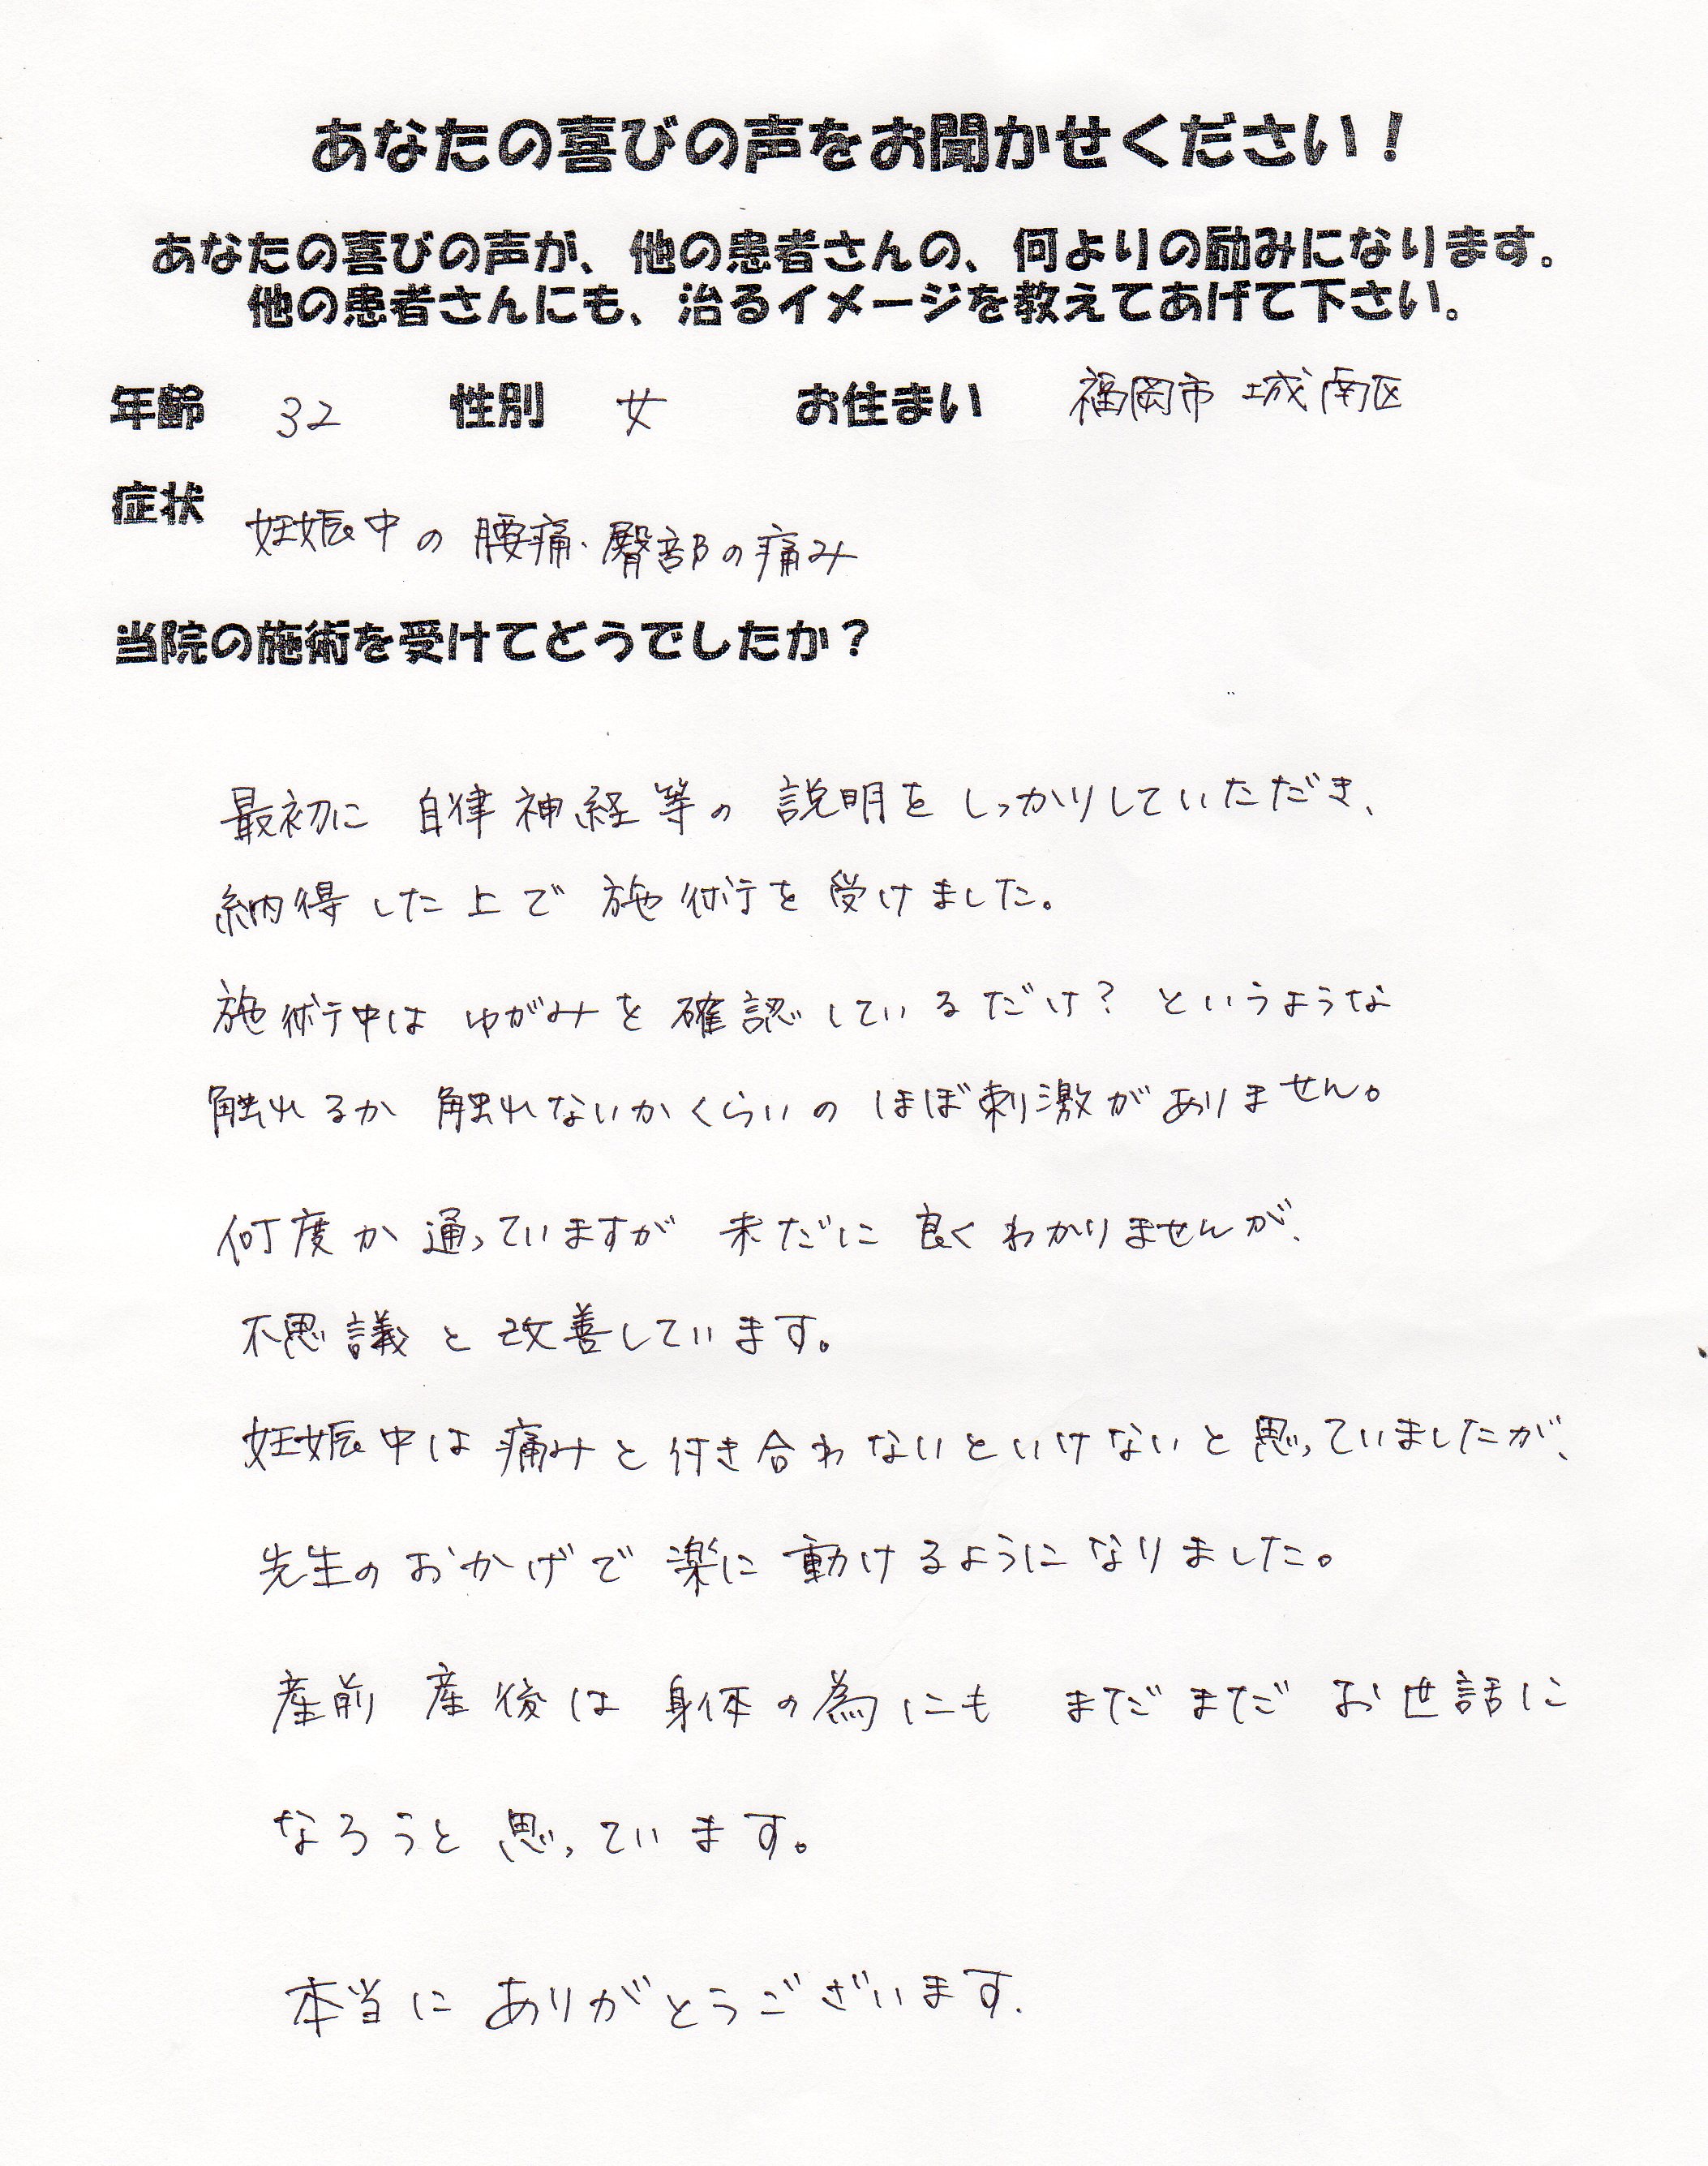 あなたの喜びの声をお聞かせください！
あなたの喜びの声が、他の患者さんの、何よりの励みになります。
他の患者さんにも、治るイメージを教えてあげて下さい。
年齢 32 性別 女 お住まい 福岡市 城南区
症状 妊娠中の腰痛・臀部の痛み
当院の施術を受けてどうでしたか？
最初に 自律神経等の 説明を しっかりしていただき、
納得した上で 施術を 受けました。
施術中は ゆがみを 確認しているだけ? というような
触れるか 触れないかくらいの ほぼ刺激がありません。
何度か 通っていますが 未だに 良くわかりませんが、
不思議と 改善しています。
妊娠中は 痛みと付き合わないといけないと思っていましたが、
先生のおかげで 楽に 動けるようになりました。
産前 産後は 身体の為にも まだまだ お世話に
なろうと 思っています。
本当に ありがとうございます.